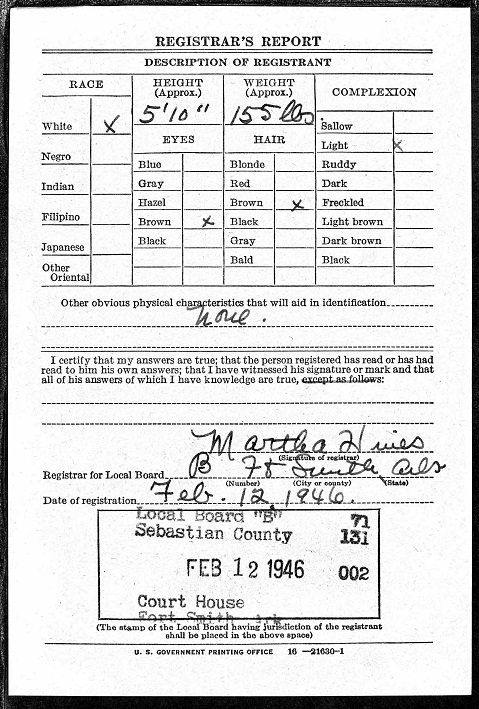 REGISTRAR'S REPORT
DESCRIPTION OF REGISTRANT
RACE
HEIGHT (Approx.)
WEIGHT (Approx.)
COMPLEXION
5'10"
155 lbs.
White X
Negro
Indian
Filipino
Japanese
Other Oriental
EYES
Blue
Gray
Hazel
Brown X
Black
HAIR
Blonde
Red
Brown X
Black
Gray
Bald
Sallow
Light X
Ruddy
Dark
Freckled
Light brown
Dark brown
Black
Other obvious physical characteristics that will aid in identification
None.
I certify that my answers are true; that the person registered has read or has had
read to him his own answers; that I have witnessed his signature or mark and that
all of his answers of which I have knowledge are true, except as follows:
Martha Hines
(Signature of registrar)
Registrar for Local Board B Ft Smith Ark
(Number) (City or county) (State)
Date of registration Feb. 12, 1946.
Local Board "B" 71
Sebastian County 131
FEB 12 1946 002
Court House
Fort Smith Ark
(The stamp of the Local Board having jurisdiction of the registrant
shall be placed in the above space)
U. S. GOVERNMENT PRINTING OFFICE 16—21630-1